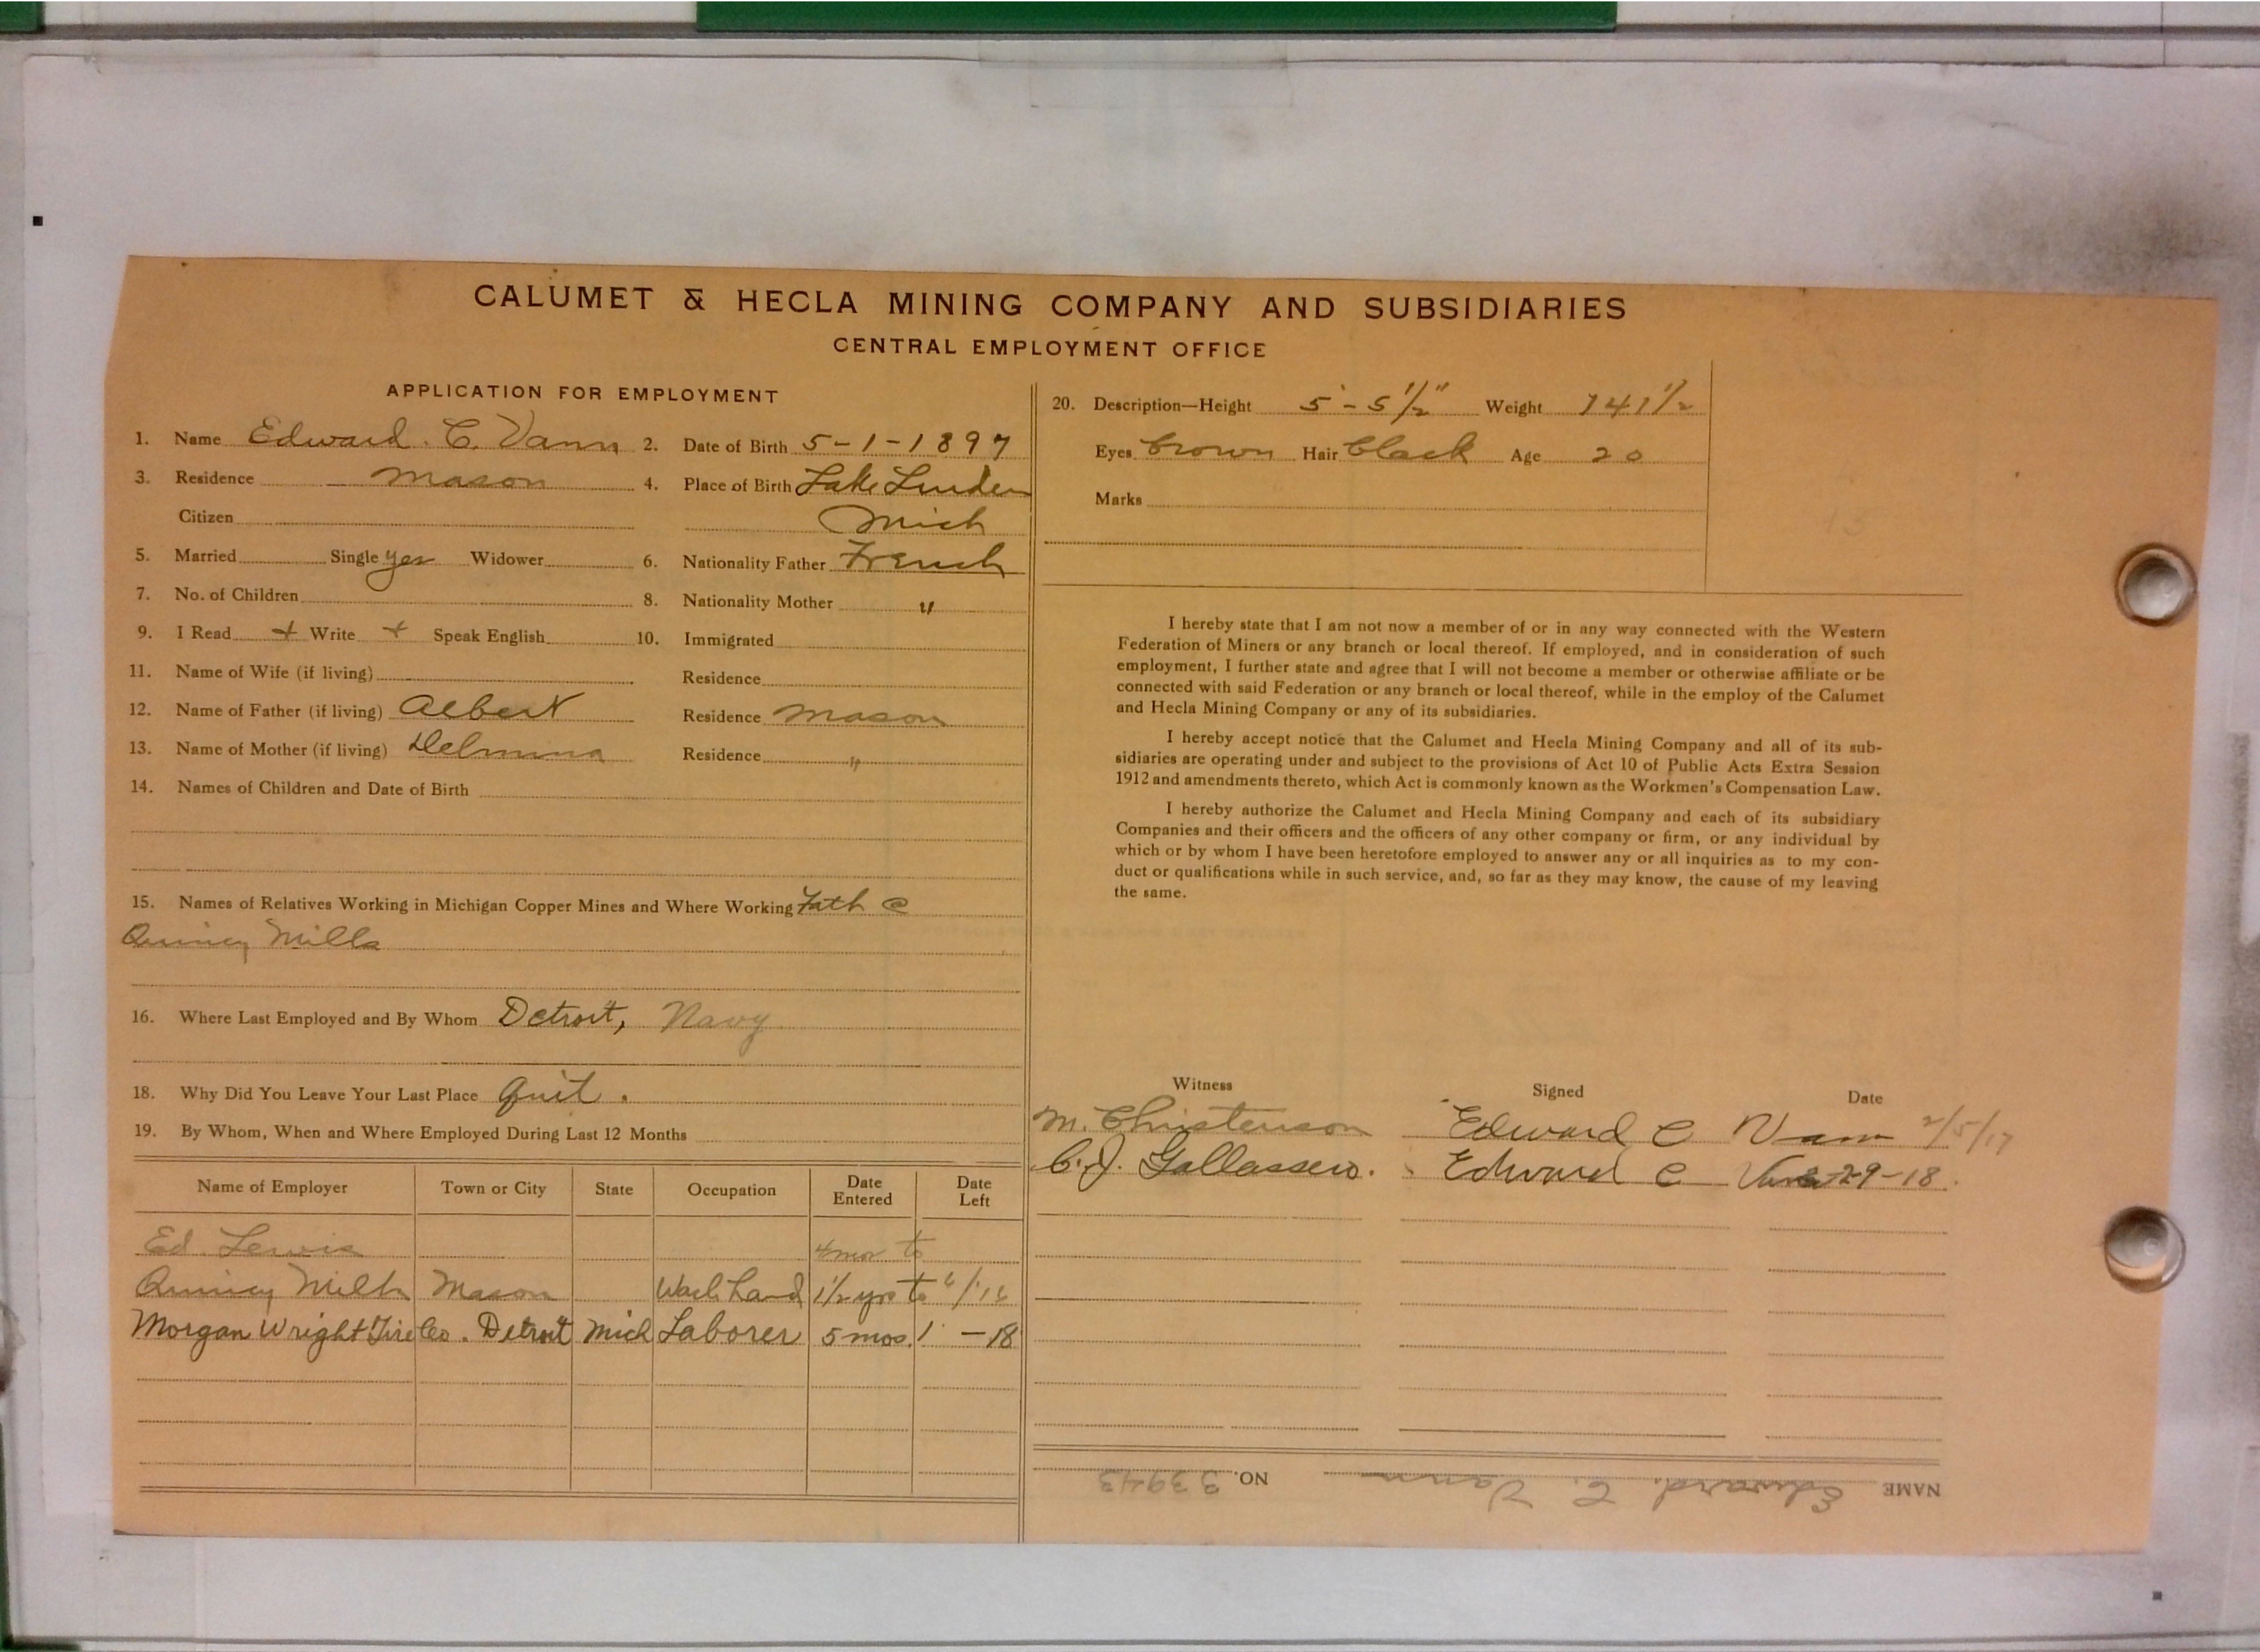 CALUMET & HECLA MINING COMPANY AND SUBSIDIARIES
CENTRAL EMPLOYMENT OFFICE
APPLICATION FOR EMPLOYMENT
1. Name Edward. C. Vann 2. Date of Birth 5-1-1897
3. Residence Mason 4. Place of Birth Lake Linden
Citizen Mich
5. Married Single yes Widower 6. Nationality Father French
7. No. of Children 8. Nationality Mother "
9. I Read + Write + Speak English 10. Immigrated
11. Name of Wife (if living) Residence
12. Name of Father (if living) Albert Residence Mason
13. Name of Mother (if living) Delmina Residence "
14. Names of Children and Date of Birth
15. Names of Relatives Working in Michigan Copper Mines and Where Working Fath @
Quincy Mills
16. Where Last Employed and By Whom Detroit, Navy
18. Why Did You Leave Your Last Place Quit.
19. By Whom, When and Where Employed During Last 12 Months
Name of Employer Town or City State Occupation Date Entered Date Left
Ed. Lewis 4 mos to
Quincy Mills Mason Wash hand 1 1/2 yrs to 6/16
Morgan Wright Tire Co. Detroit Mich Laborer 5 mos. 1 - 18
20. Description—Height 5'-5 1/2" Weight 141 1/2
Eyes brown Hair black Age 20
Marks
I hereby state that I am not now a member of or in any way connected with the Western
Federation of Miners or any branch or local thereof. If employed, and in consideration of such
employment, I further state and agree that I will not become a member or otherwise affiliate or be
connected with said Federation or any branch or local thereof, while in the employ of the Calumet
and Hecla Mining Company or any of its subsidiaries.
I hereby accept notice that the Calumet and Hecla Mining Company and all of its sub-
sidiaries are operating under and subject to the provisions of Act 10 of Public Acts Extra Session
1912 and amendments thereto, which Act is commonly known as the Workmen's Compensation Law.
I hereby authorize the Calumet and Hecla Mining Company and each of its subsidiary
Companies and their officers and the officers of any other company or firm, or any individual by
which or by whom I have been heretofore employed to answer any or all inquiries as to my con-
duct or qualifications while in such service, and, so far as they may know, the cause of my leaving
the same.
Witness Signed Date
M. Christenson Edward C Vann 2/5/17
C. J. Edward C Vann 29-18.
NAME Edward. C. Vann NO. 33943